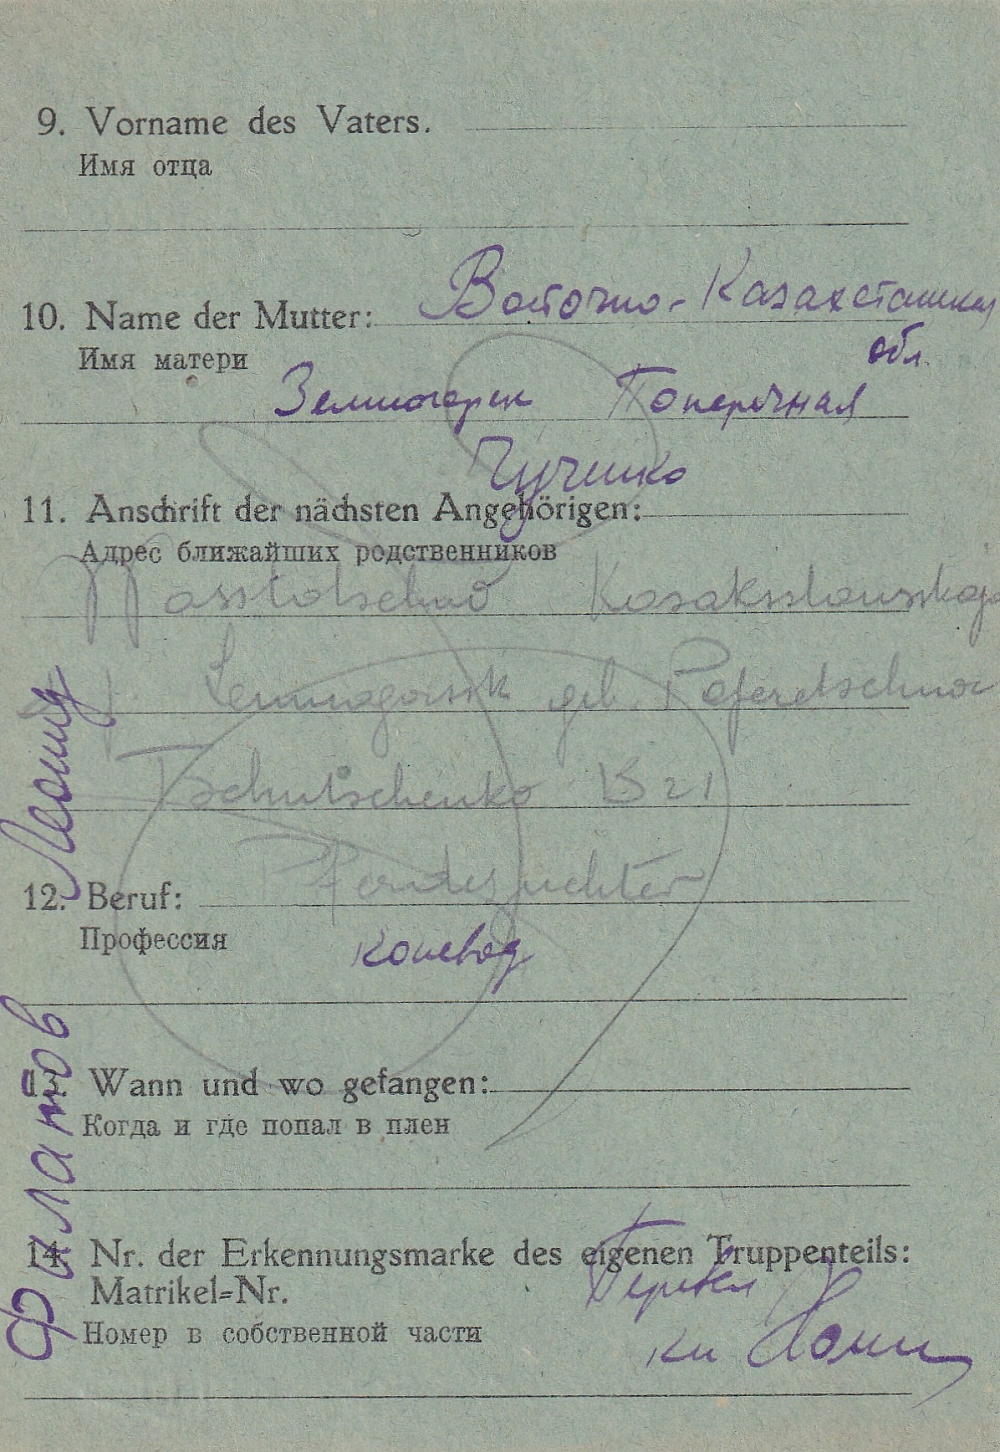 9. Vorname des Vaters.
Имя отца
Восточно-Казахстанская
10. Name der Mutter:
обл.
Имя матери
Поперечная
11. Anschrift der nächsten Angehörigen:
Адрес ближайших родственников
Lenınogorsk geb.
Tschutschenko
Pferdezüchter
12. Beruf:
Профессия
коневод
13. Wann und wo gefangen:
Когда и где попал в плен
14. Nr. der Erkennungsmarke des eigenen Truppenteils:
Matrikel=Nr.
Перевел
Номер в собственной части
Филатов Леонид